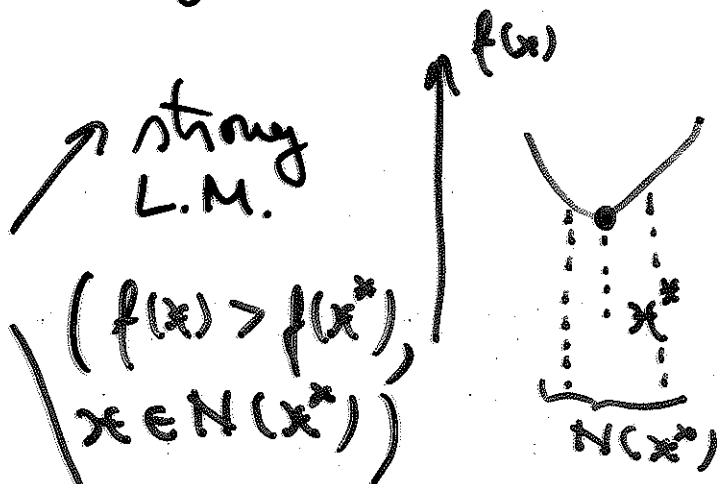 strong
L.M.
(f(x) > f(x*),
x ∈ N(x*))
f(x)
x*
N(x*)